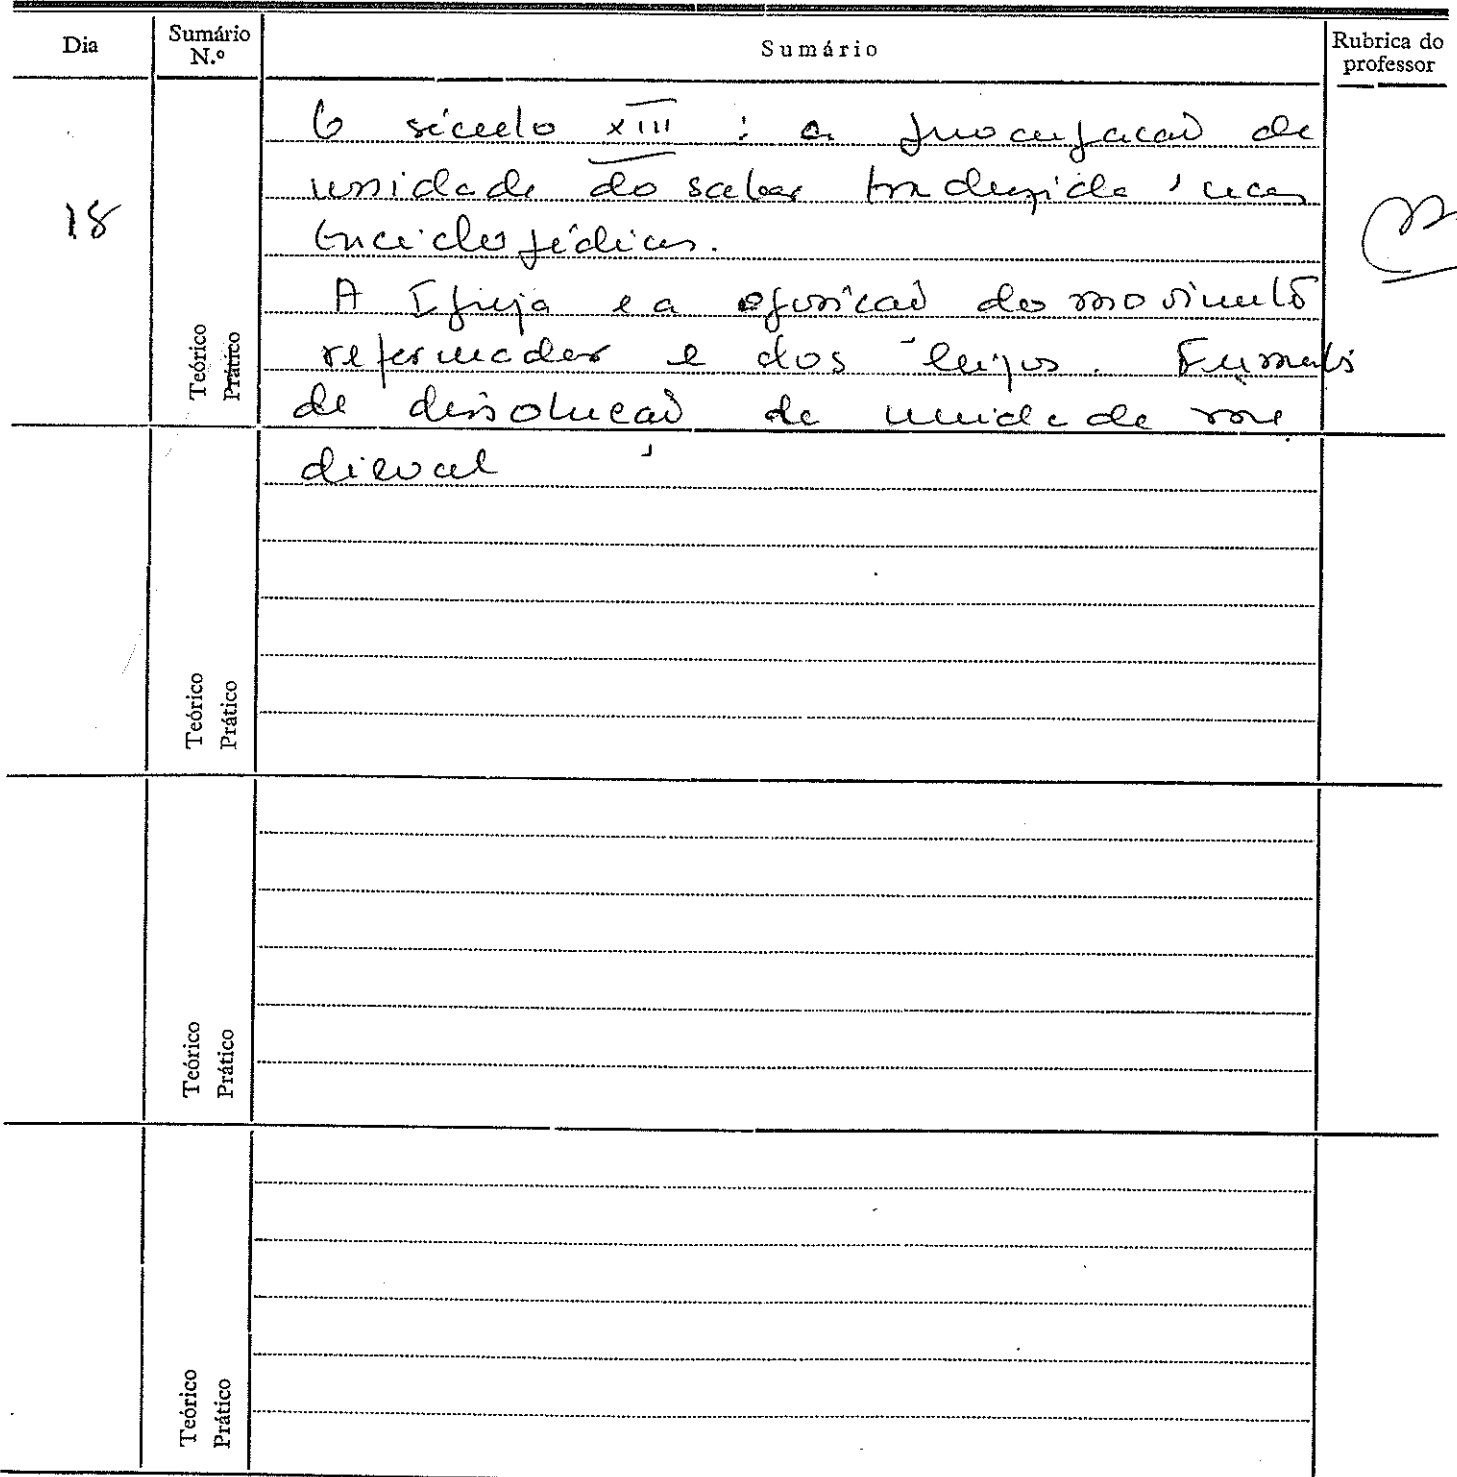 Dia
Sumário
N.º
Sumário
Rubrica do
professor
18
O século XIII : a preocupação de
unidade do saber traduzida nas
Enciclopédias.
A Igreja e a oposição do movimento
reformador e dos leigos.
de dissolução da unidade me
dieval
Teórico
Prático
Teórico
Prático
Teórico
Prático
Teórico
Prático